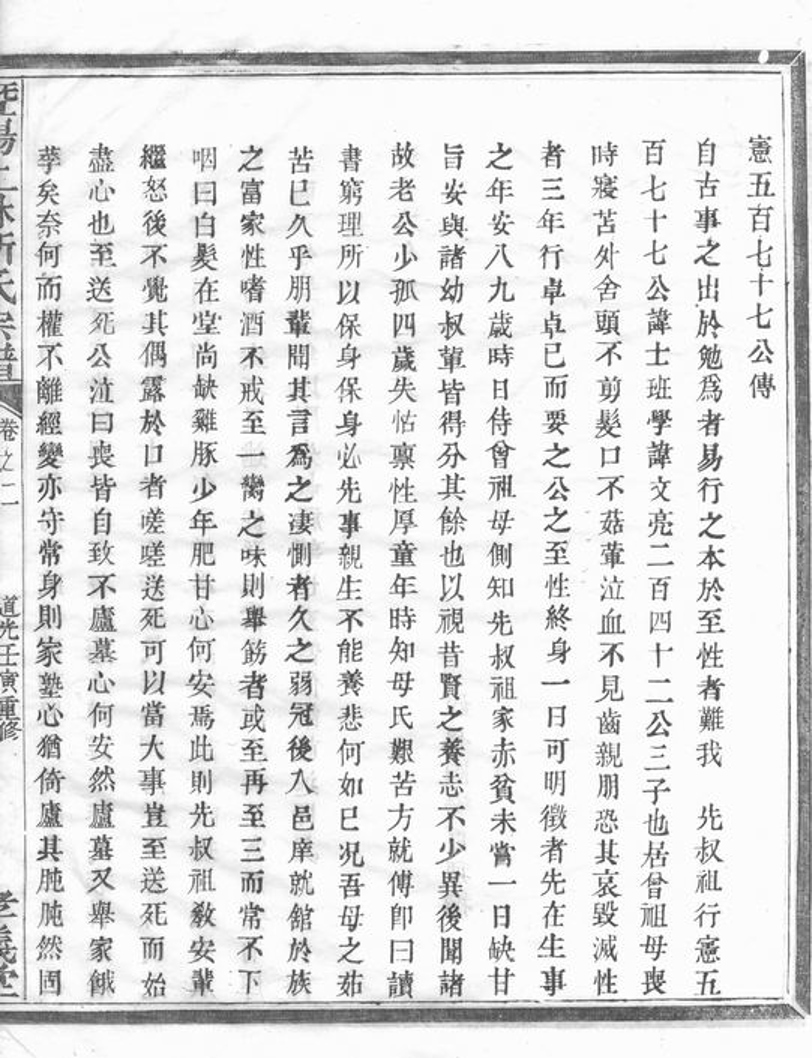 憲五百七十七公傳
自古事之出於勉爲者易行之本於至性者難我　先叔祖行憲五
百七十七公諱士班學諱文亮二百四十二公三子也居曾祖母喪
時寢苫外舍頭不剪髮口不茹葷泣血不見齒親朋恐其哀毀滅性
者三年行卓卓已而要之公之至性終身一日可明徵者先在生事
之年安八九歲時日侍曾祖母側知先叔祖家赤貧未嘗一日缺甘
旨安與諸幼叔輩皆得分其餘也以視昔賢之養志不少異後聞諸
故老公少孤四歲失怙禀性厚童年時知母氏艱苦方就傅卽曰讀
書窮理所以保身保身必先事親生不能養悲何如已况吾母之茹
苦已久乎朋輩聞其言爲之凄惻者久之弱冠後入邑庠就館於族
之富家性嗜酒不戒至一臠之味則舉筯者或至再至三而常不下
咽曰白髮在堂尚缺雞豚少年肥甘心何安焉此則先叔祖敎安輩
繼怒後不覺其偶露於口者嗟嗟送死可以當大事豈至送死而始
盡心也至送死公泣曰喪皆自致不廬墓心何安然廬墓又舉家餓
莩矣奈何而權不離經變亦守常身則家塾心猶倚廬其肫肫然固
暨陽上林斯氏宗譜　卷之二　道光壬寅重修　孝義堂